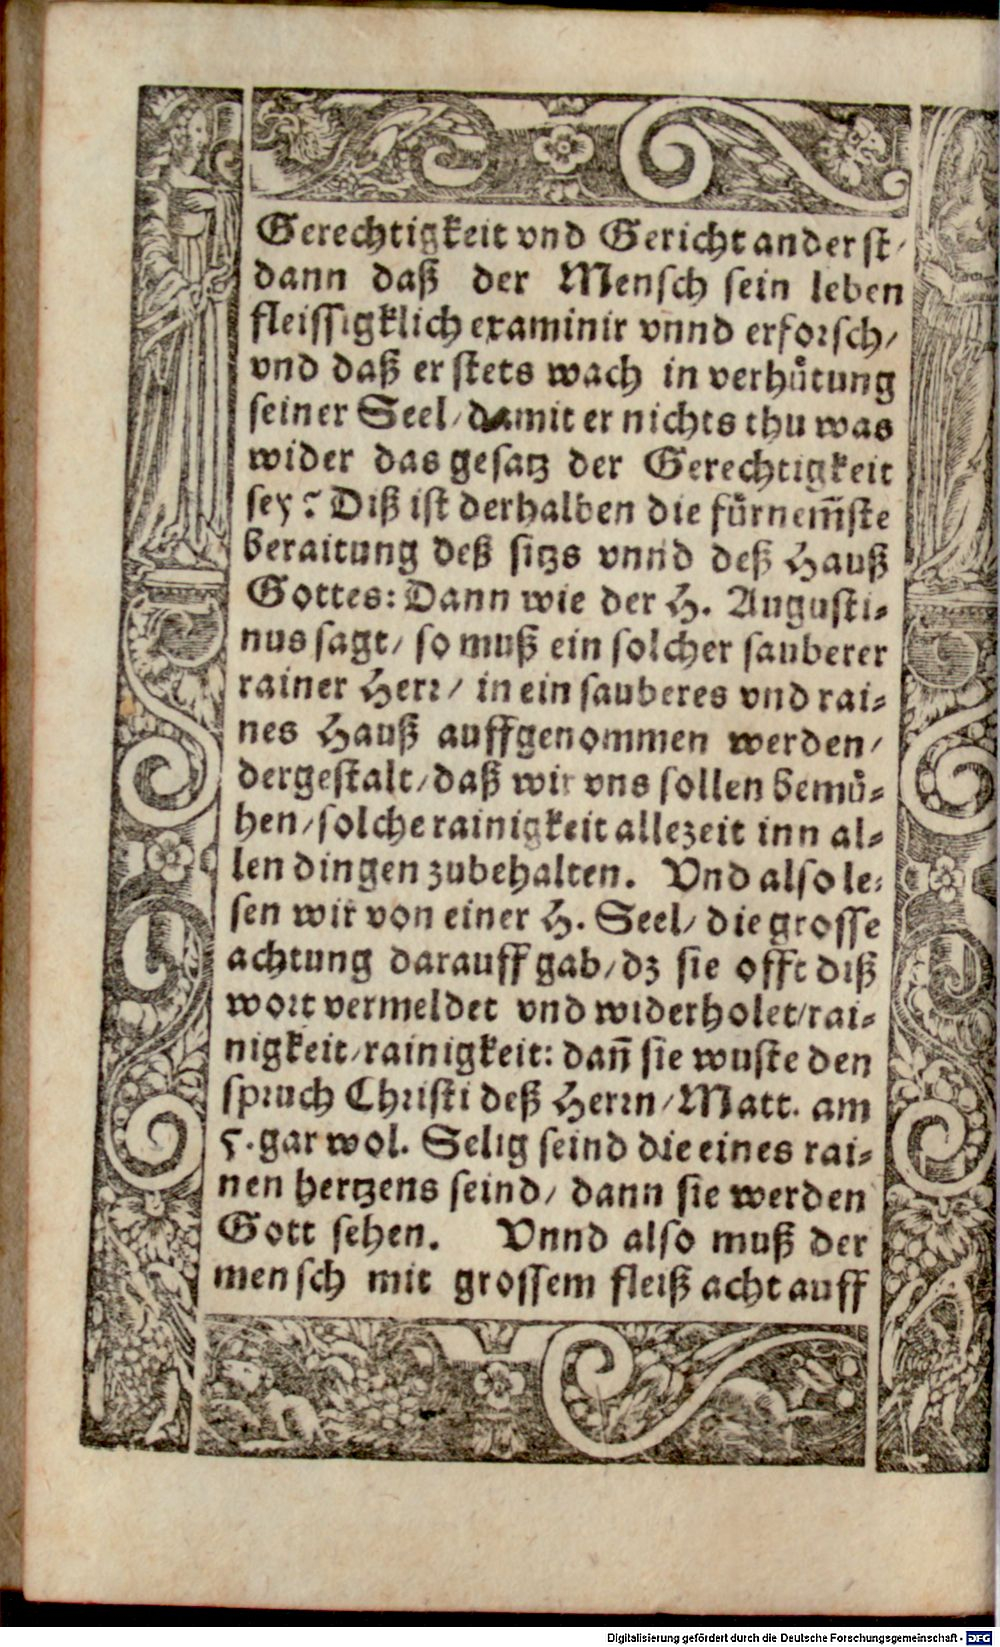 Gerechtigkeit vnd Gericht anderst/
dann daß der Mensch sein leben
fleissigklich examinir vnnd erforsch/
vnd daß er stets wach in verhuͤtung
seiner Seel/ damit er nichts thu was
wider das gesatz der Gerechtigkeit
sey? Diß ist derhalben die fuͤrnem̃ste
beraitung deß sitzs vnnd deß Hauß
Gottes: Dann wie der H. Augusti-
nus sagt/ so muß ein solcher sauberer
rainer Herr/ in ein sauberes vnd rai-
nes Hauß auffgenommen werden/
dergestalt/ daß wir vns sollen bemuͤ-
hen/ solche rainigkeit allezeit inn al-
len dingen zubehalten. Vnd also le-
sen wir von einer H. Seel/ die grosse
achtung darauff gab/ dz sie offt diß
wort vermeldet vnd widerholet/ rai-
nigkeit/ rainigkeit: dañ sie wuste den
spruch Christi deß Herrn/ Matt. am
5. gar wol. Selig seind die eines rai-
nen hertzens seind/ dann sie werden
Gott sehen. Vnnd also muß der
mensch mit grossem fleiß acht auff
Digitalisierung gefördert durch die Deutsche Forschungsgemeinschaft - DFG